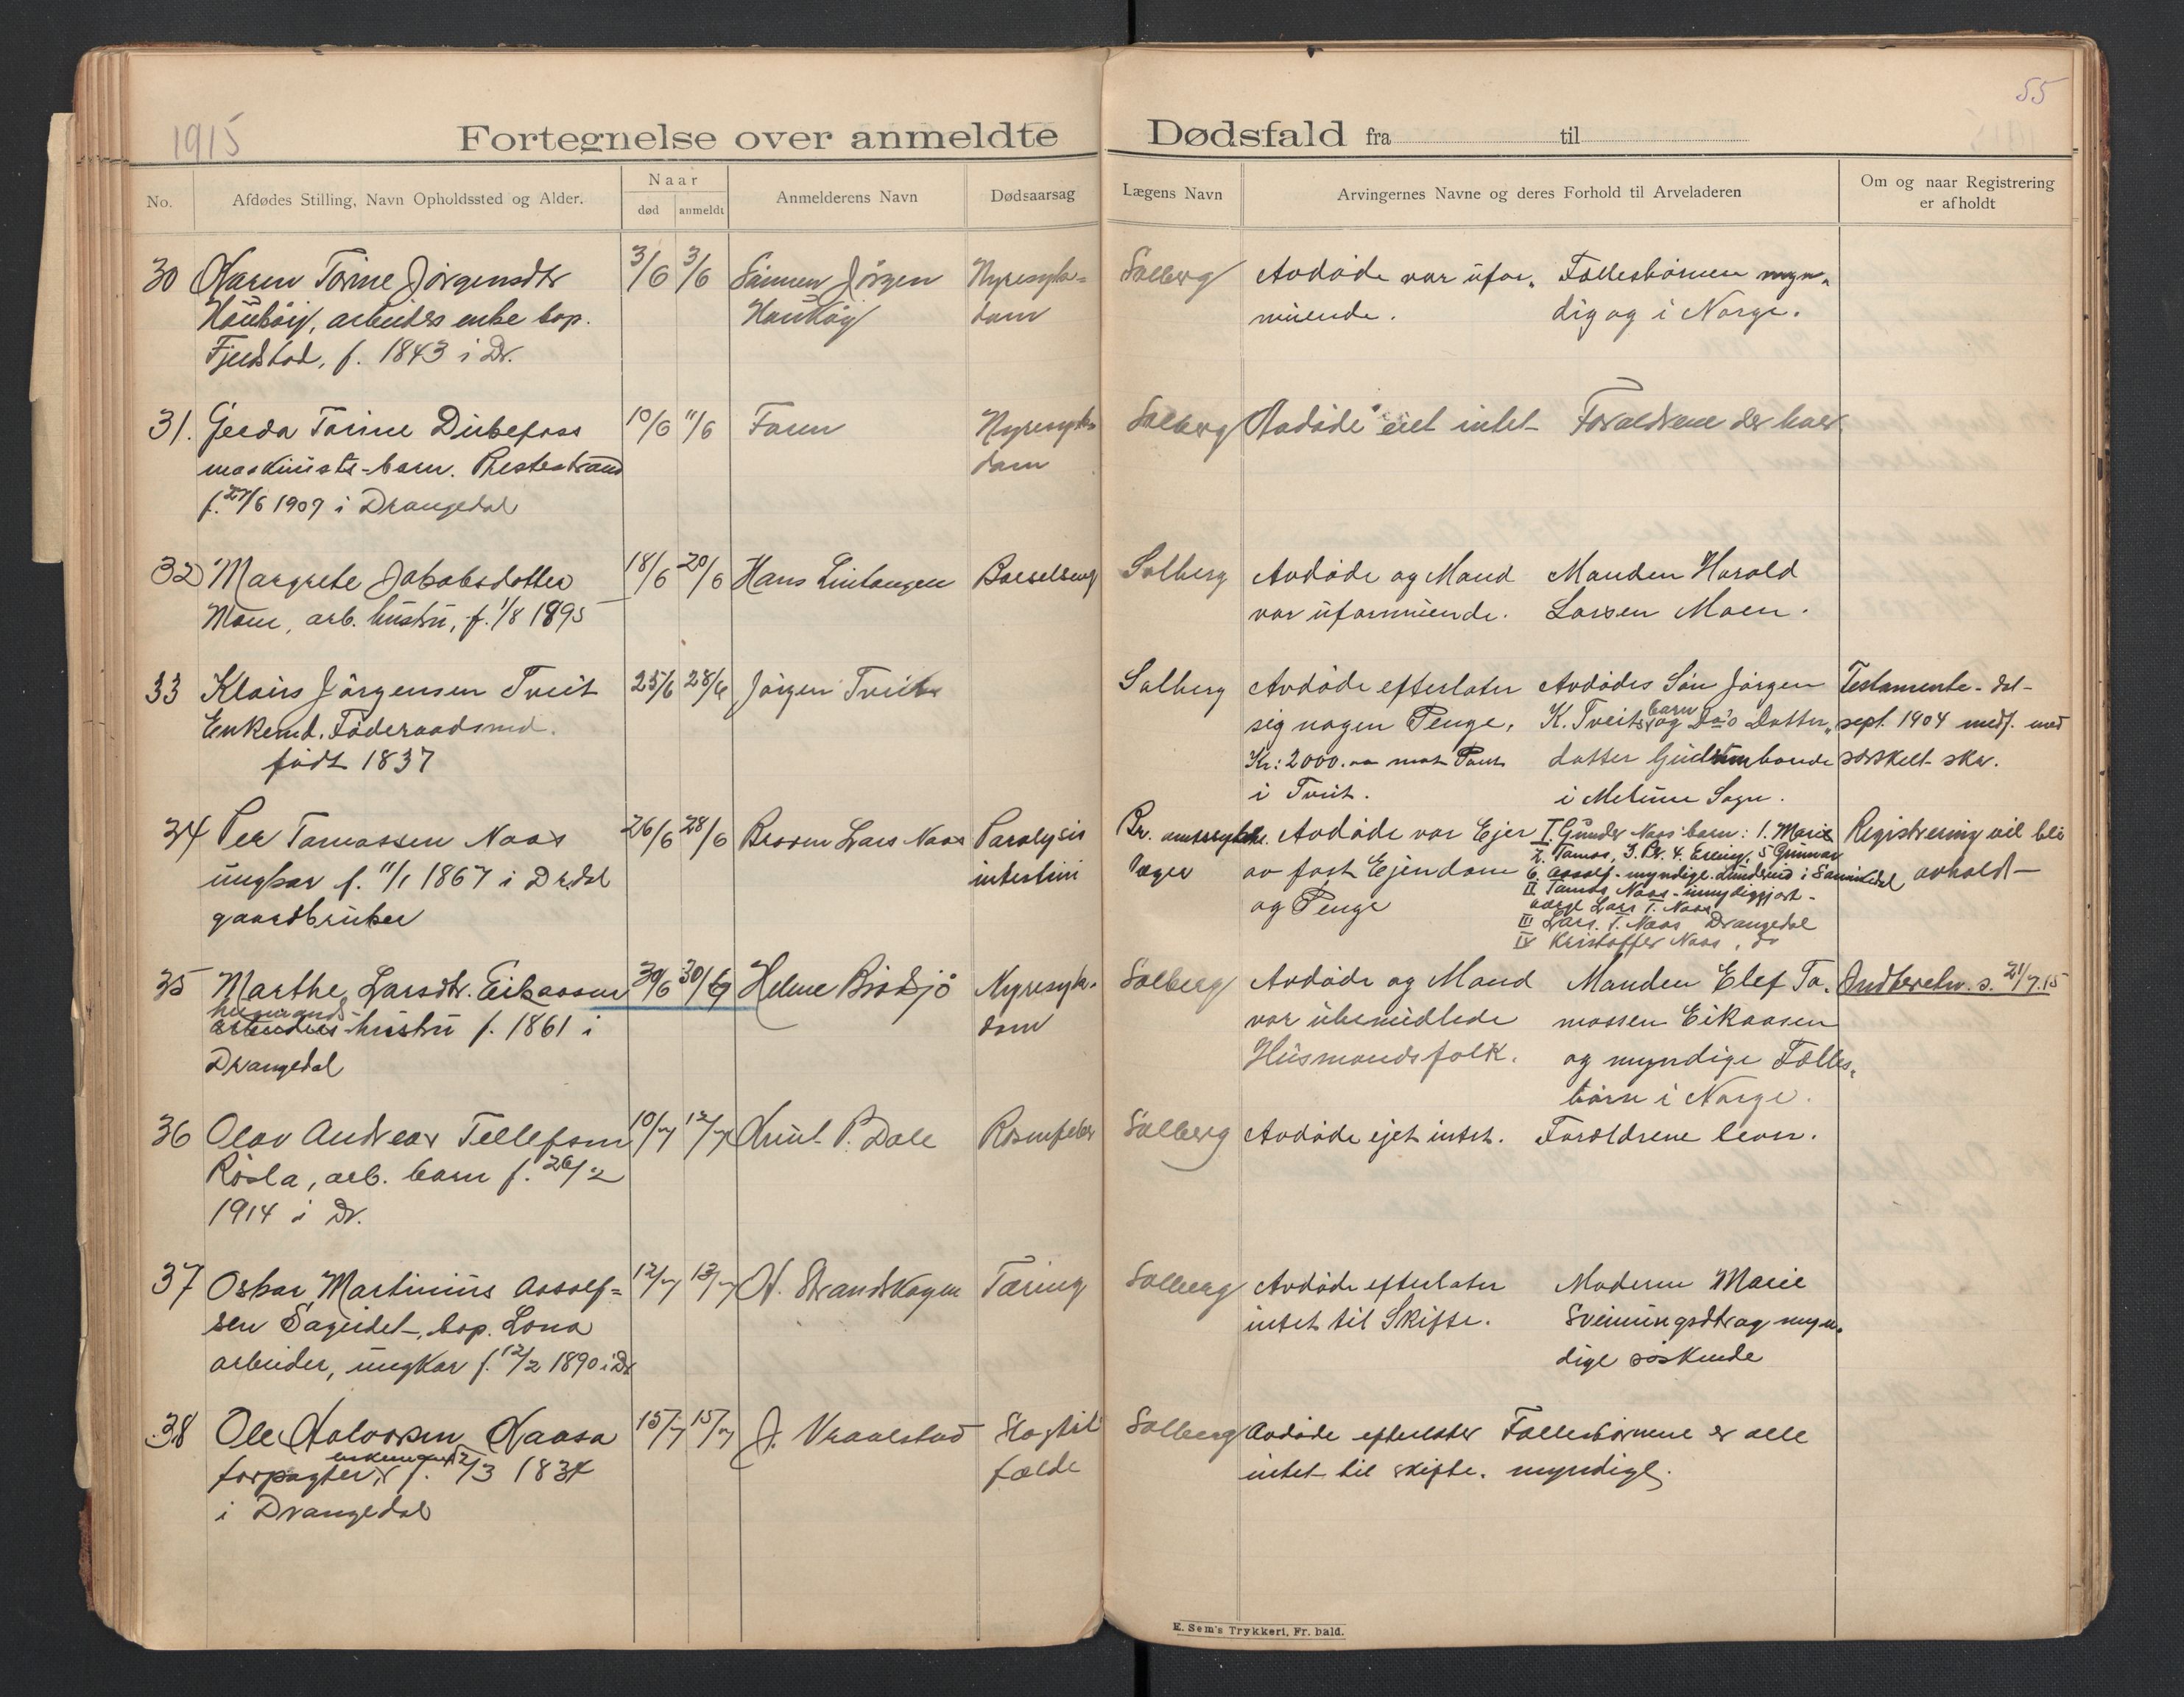 55
1915
Fortegnelse over anmeldte Dødsfald fra til
No.
Afdødes Stilling, Navn Opholdssted og Alder.
Naar
død
anmeldt
Anmelderens Navn
Dødsaarsag
Lægens Navn
Arvingernes Navne og deres Forhold til Arveladeren
Om og naar Registrering
er afholdt
30 Karen Torine Jörgensdtr 3/6 3/6 Sönnen Jörgen Nyresyke= Solberg Avdöde var ufor= Fællesbörnene myn=
arbeiders enke bop. dom muende. dig og i Norge.
f. 1843 i Dr.
31. Gerda Torine Dubefoss 10/6 11/6 Faren Nyresyke= Solberg Avdöde eiet intet Forældrene der lever
maskinists-barn. Prestestrand dom
f. 27/6 1907 i Drangedal
32 Margrete Jakobsdotter 18/6 20/6 Hans Lintangen Barselseng Solberg Avdöde og Mand Manden Harald
Moen, arb. hustru, f. 1/8 1895 var uformuende. Larsen Moen.
33 Klaus Jörgensen Tveit 25/6 28/6 Jörgen Tveit Solberg Avdöde efterlater Avdödes Sön Jörgen Testamente dat
Enkemd. Föderaadsmd. sig nogen Penge, K. Tveits barn og Do's Datter= sept. 1904 medf. med
födt 1837 Kr: 2000.00 mot Pant datter Gudrun boende særskelt skr.
i Tveit. i Melum Sogn.
34 Per Tamassen Naas 26/6 28/6 Broren Lars Naas Paralysis Br. amtssykeh. Avdöde var Ejer I. Gunder Naas' barn: 1. Marie Registrering vil bli
2. Tamas, 3. Br. 4. Erling, 5 Gunnar
ungkar f. 11/1 1867 i Dr.dal intestini læger av fast Ejendom 6. Aasolf - myndige. Lundereid i Sannikedal avholdt
II Tamas Naas - umyndiggjort -
gaardbruker og Penge værge Lars T. Naas
III Lars T. Naas Drangedal
IV Kristoffer Naas, do
35 Marthe Larsdtr. Eikaasen 30/6 30/6 Helene Solberg Avdöde og Mand Manden Elef Ta= 21/7.15
Nyresyke=
husmands
arbeiders hustru f. 1861 i dom var ubemidlede massen Eikaasen
Drangedal Husmandsfolk. og myndige Fælles=
börn i Norge.
36 Olav Andreas Tellefsen 10/7 12/7 Knut P. Dale Rosenfeber Solberg Avdöde ejet intet. Forældrene lever.
Rosla, arb. barn f. 26/2
1914 i Dr.
37 Oskar Martinius Aasolf= 12/7 13/7 N. Strandskogen Tæring Solberg Avdöde efterlater Moderen Marie
sen Sageidet, bop. Lona intet til Skifte. Svenningsdtr og myn=
arbeider, ungkar f. 12/2 1890 i Dr dige söskende
38 Ole Halvorsen Kaasa 15/7 15/7 J. Vraalstad Slagtil Solberg Avdöde efterlater Fællesbörnene er alle
enkemand
forpagter, f. 12/3 1834 fælde intet til skifte. myndige.
i Drangedal
E. Sem's Trykkeri, Fr. hald.